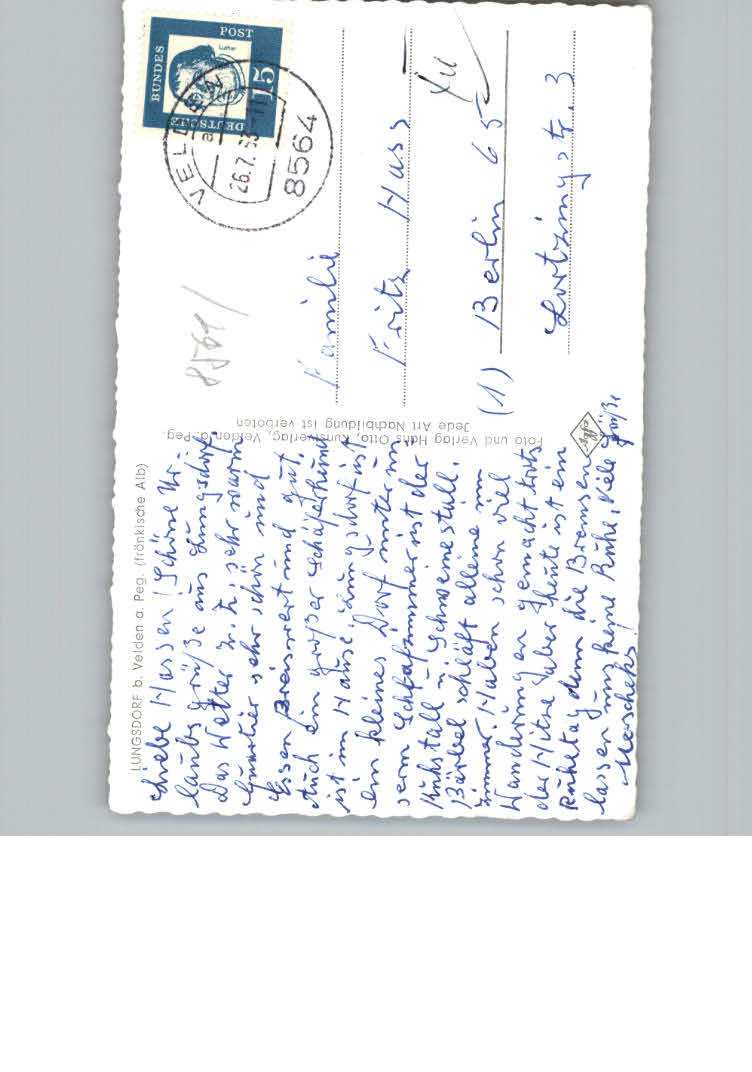 LUNGSDORF b. Velden a. Peg. (fränkische Alb)
Liebe Hassen! Schöne Ur-
laubsgrüße aus Lungsdorf.
Das Wetter z. Z. sehr warm
Quartier sehr schön und
Essen Preiswert und gut.
Auch ein großer Schäferhund
ist im Hause. Lungsdorf ist
ein kleines Dorf unter un
serm Schlafzimmer ist der
Kuhstall u. Schweinestall.
Bärbel schläft alleine im
Zimmer. Haben schon viel
Wanderungen gemacht trotz
der Hitze, aber heute ist ein
Ruhetag denn die Bremsen
lassen uns keine Ruhe. Viele Grüße
Foto und Verlag Hans Otto, Kunstverlag, Velden a. Peg.
Jede Art Nachbildung ist verboten
BUNDES
POST
DEUTSCHE
Luther
15
VELDEN
a
26.7.63-11
8564
8561
Familie
Fritz Hass
(1) Berlin 65
Lortzingstr. 3